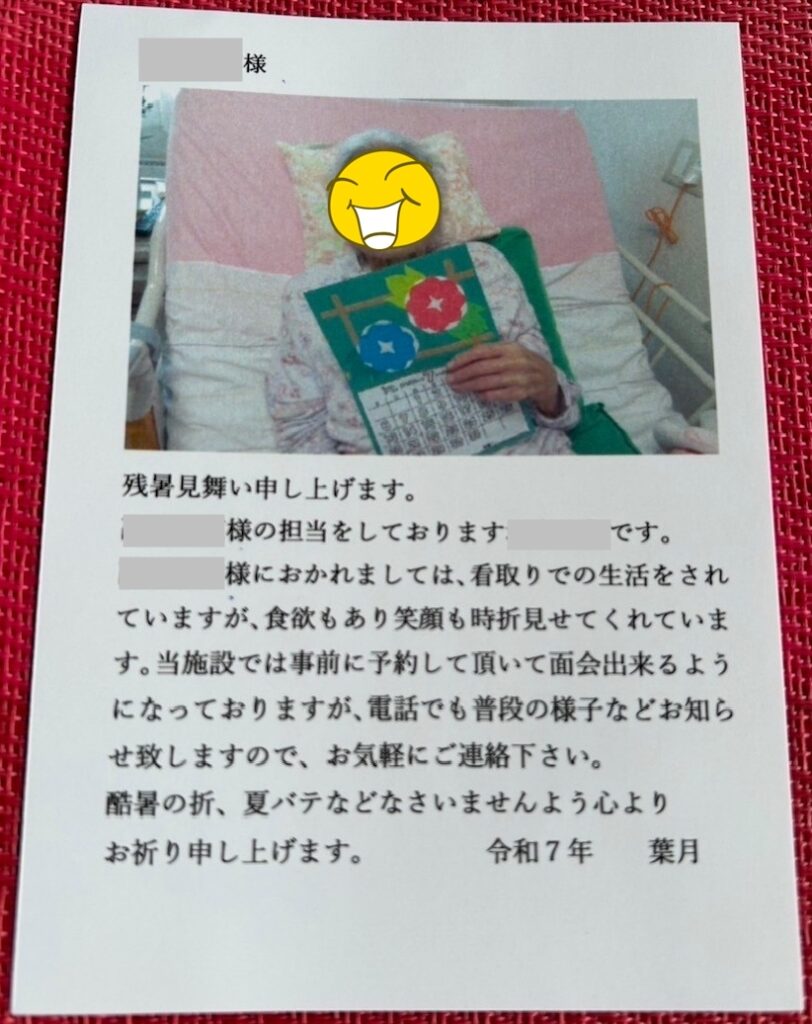 様
残暑見舞い申し上げます。
様の担当をしております です。
様におかれましては、看取りでの生活をされ
ていますが、食欲もあり笑顔も時折見せてくれていま
す。当施設では事前に予約して頂いて面会出来るよう
になっておりますが、電話でも普段の様子などお知ら
せ致しますので、お気軽にご連絡下さい。
酷暑の折、夏バテなどなさいませんよう心より
お祈り申し上げます。 令和７年 葉月